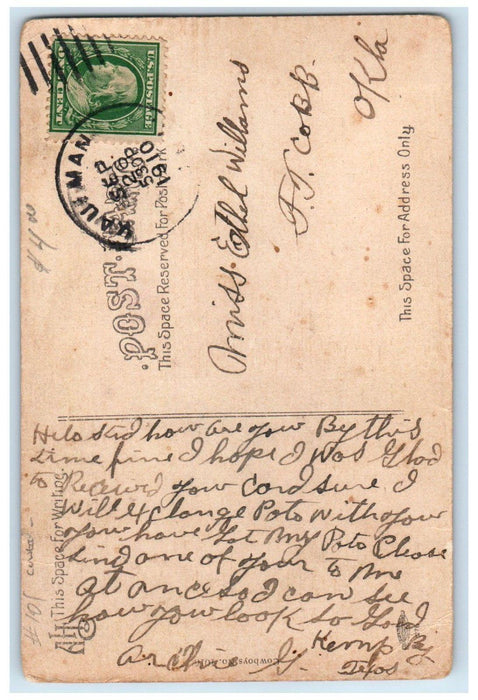 U.S. POSTAGE
ONE CENT
KAUFMAN
SEP
26
530P
1910
$4.00
POST
This Space Reserved For Postmark
Miss Ethel Williams
Ft. Cobb.
Okla
This Space For Address Only.
This Space For Writing
#101
Helo Kid how are you By this
time fine I hope I was Glad
to Recived your Card sure I
Will Exchange Poto With you
you have Got My Poto Please
sind one of your to Me
at once so I can see
how you look so Good
By
Archie G. Kemp
Texas
Cowboys No.